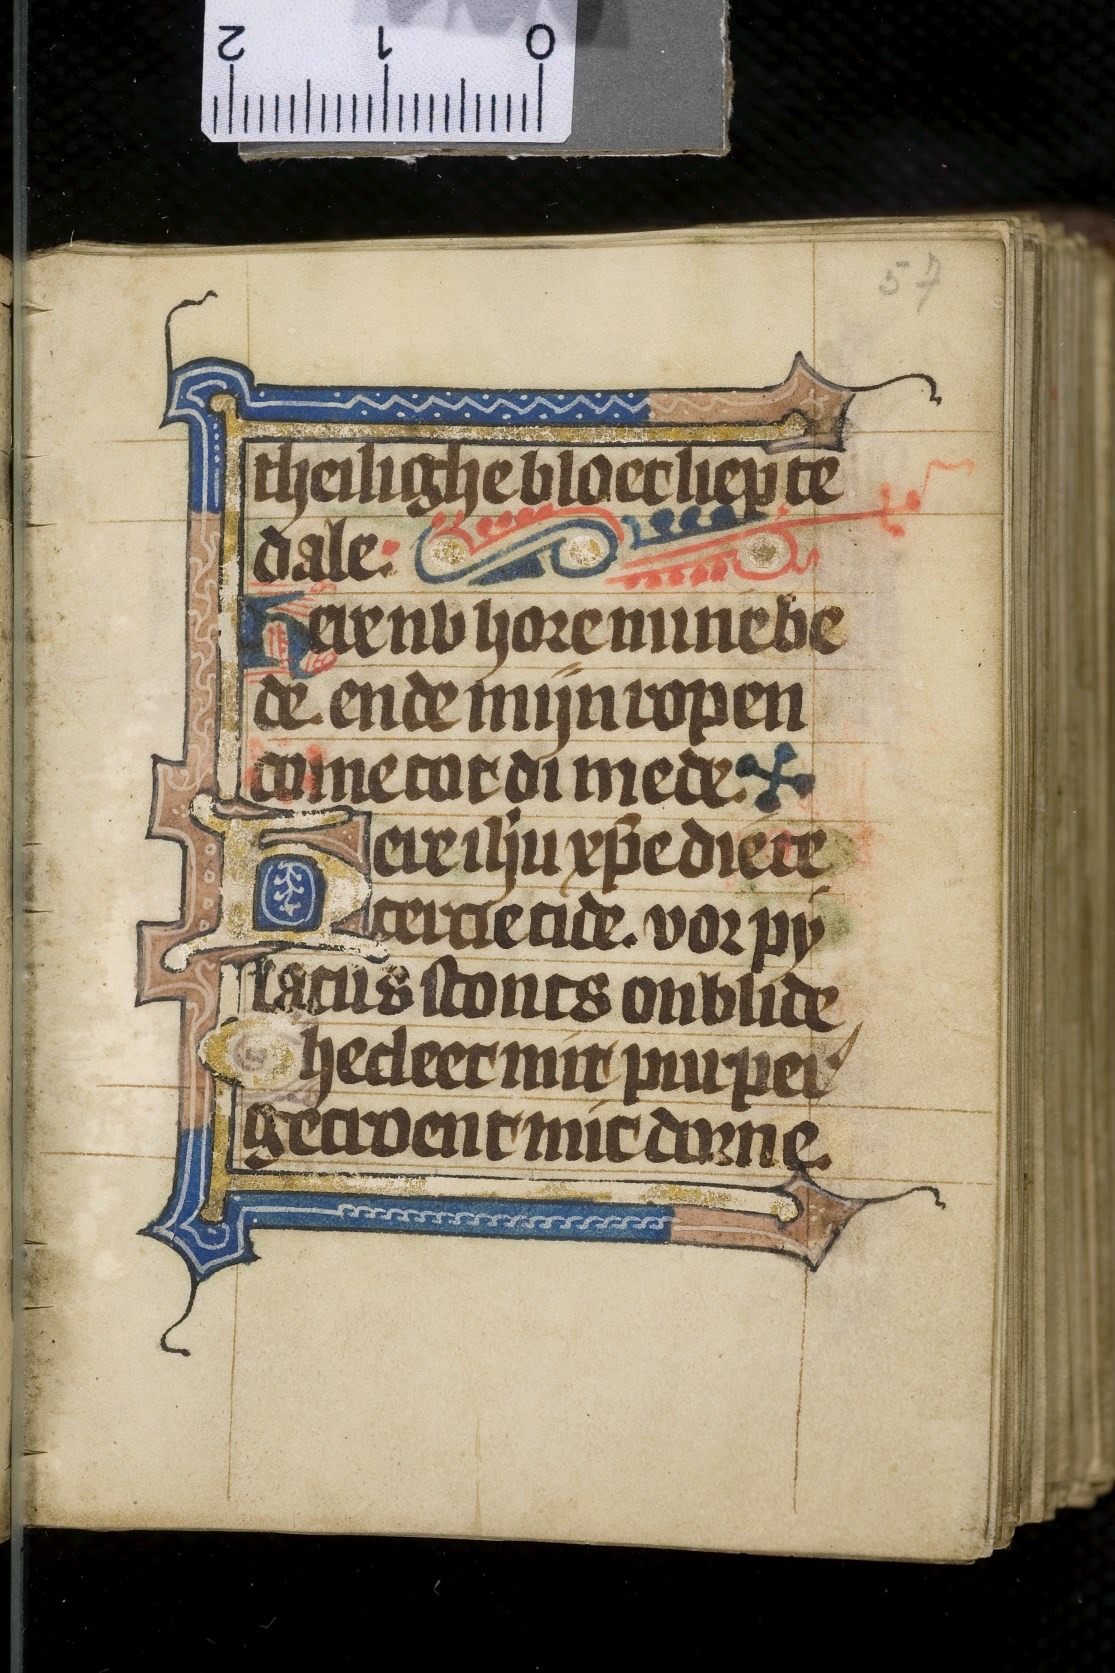 2 1 0
57
theilighe bloet liep te
dale.
Here nv hore mine be
de. ende mijn ropen
come tot di mede.
Here ihu xpe die te
tercie tide. vor py
latus stonts onblide
Ghecleet mit purper
gecroent mit dorne.